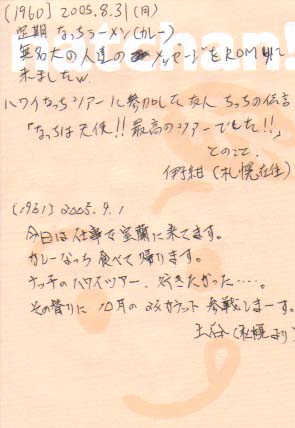 (1960) 2005.8.31(月)
定期 なっちラーメン(カレー)
無名大の人達の メッセージをROMりに
来ましたw
ハワイなっちツアーに参加した友人 ちっちの伝言
「なっちは天使!!最高のツアーでした!!」
とのこと、
伊紺(札幌在住)
(1961) 2005.9.1
今日は仕事で室蘭に来てます。
カレーなっち食べて帰ります。
ナッチのハワイツアー、行きたかった‥‥。
その替りに 10月の 参戦しまーす。
(札幌より)